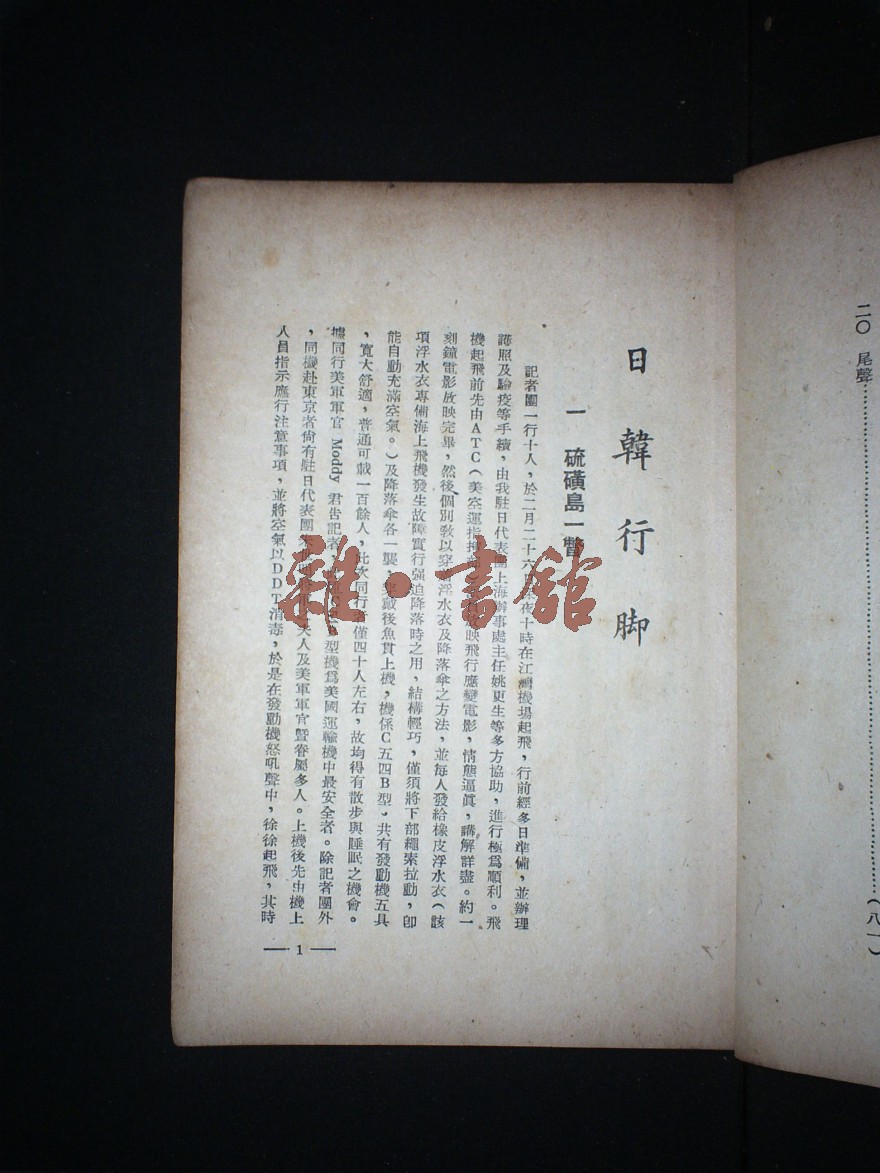 二〇 尾聲……………………………………(八一)
日韓行脚
一 硫磺島一瞥
記者團一行十人，於二月二十六日夜十時在江灣機場起飛，行前經多日準備，並辦理
護照及驗疫等手續，由我駐日代表團上海辦事處主任姚更生等多方協助，進行極爲順利。飛
機起飛前先由ATC（美空運指揮 映飛行應變電影，情態逼眞，講解詳盡。約一
刻鐘電影放映完畢，然後個別敎以穿 浮水衣及降落傘之方法，並每人發給橡皮浮水衣（該
項浮水衣專備海上飛機發生故障實行强迫降落時之用，結構輕巧，僅須將下部繩索拉動，卽
能自動充滿空氣。）及降落傘各一襲， 戴後魚貫上機，機係C五四B型，共有發動機五具
，寬大舒適，普通可載一百餘人，此次同行者僅四十人左右，故均得有散步與睡眠之機會。
據同行美軍軍官 Moddy 君告記者， 型機爲美國運輸機中最安全者。除記者團外
，同機赴東京者尙有駐日代表團 夫人及美軍軍官暨眷屬多人。上機後先由機上
人員指示應行注意事項，並將空氣以DDT消毒，於是在發動機怒吼聲中，徐徐起飛，其時
— 1 —
雜·書館